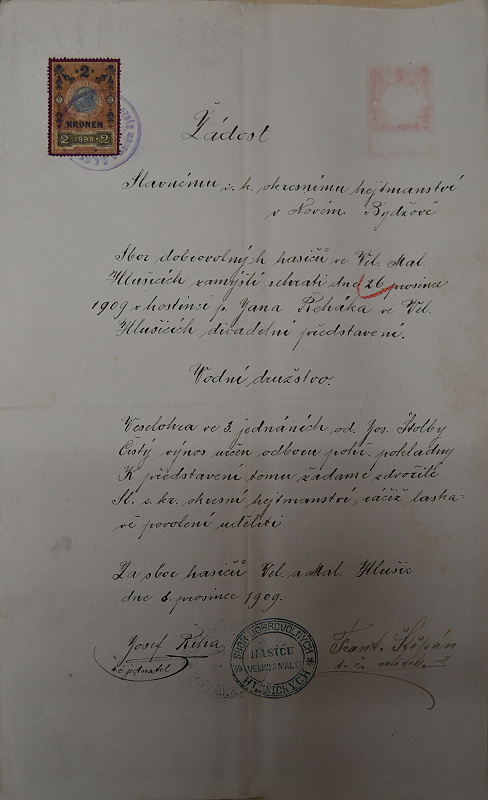 2
KRONEN
2 1898 2
Žádost
Slavnému c. k. okresnímu hejtmanství
v Novém Bydžově
Sbor dobrovolných hasičů ve Vel. Mal.
Hlušicích zamýšlí sehrati dne 26 prosince
1909 v hostinci p. Jana Řeháka ve Vel.
Hlušicích divadelní představení.
Vodní družstvo.
Veselohra ve 3. jednáních od. Jos. Štolby
Čistý výnos určen odboru pohř. pokladny
K představení tomu žádáme zdvořile
Sl. c. kr. okresní hejtmanství, račiž laska-
vě povolení uděliti
Za sbor hasičů Vel. a Mal. Hlušic
dne 8. prosince 1909.
Josef Říha
jednatel
SBOR DOBROVOLNÝCH
HASIČŮ
VELKO A MALO
HLUŠICKÝCH
Frant. Štěpán
t. č. velitel